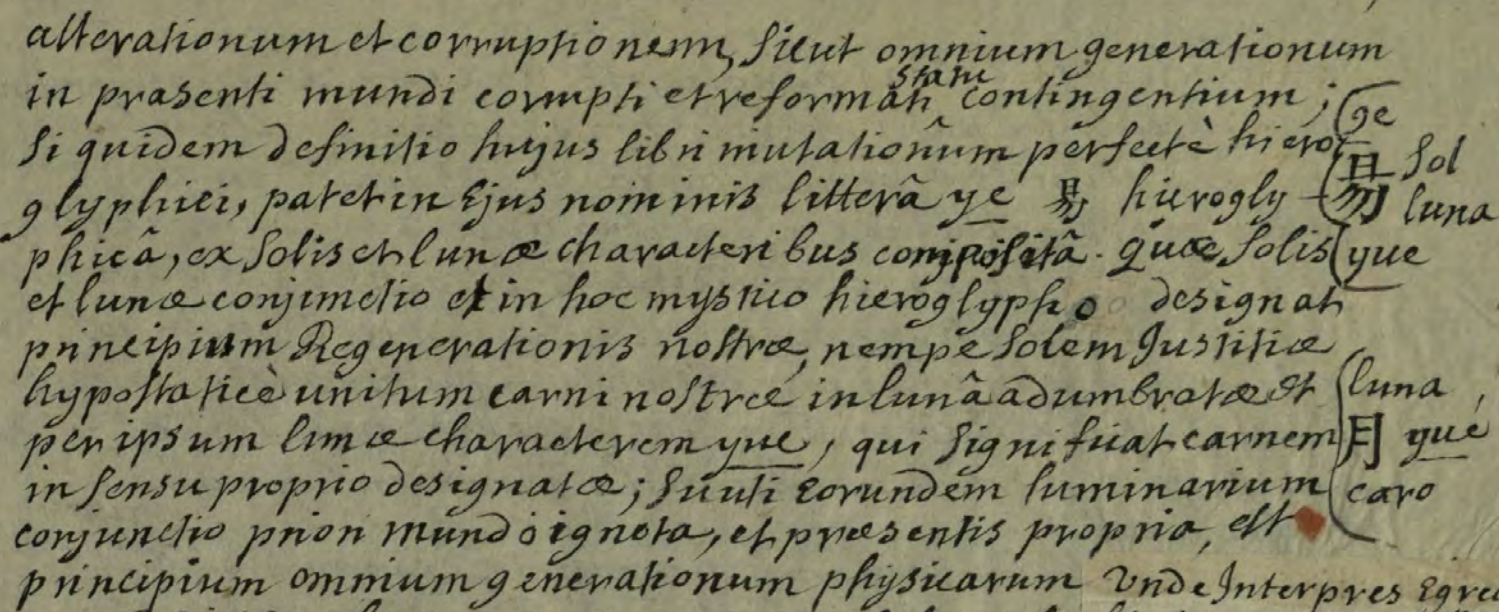 alterationum et corruptionem, sicut omnium generationum
statu
in præsenti mundi corrupti et reformati contingentium;
si quidem definitio hujus libri mutationûm perfectè hiero-
glyphici, patet in Ejus nominis litterâ ye 易 hierogly-
phicâ, ex solis et lunæ characteribus compositâ. Quæ solis
et lunæ conjunctio et in hoc mystico hieroglypho designat
principium Regenerationis nostræ, nempe solem Justitiæ
hypostaticè unitum carni nostræ in lunâ adumbratæ et
per ipsum lunæ characterem yue, qui significat carnem
in sensu proprio designatæ; sicuti eorundem luminarium
conjunctio priori mundo ignota, et præsentis propria, est
principium omnium generationum physicarum Unde Interpres
ge
日 Sol
勿 luna
yue
luna,
月 yué
caro